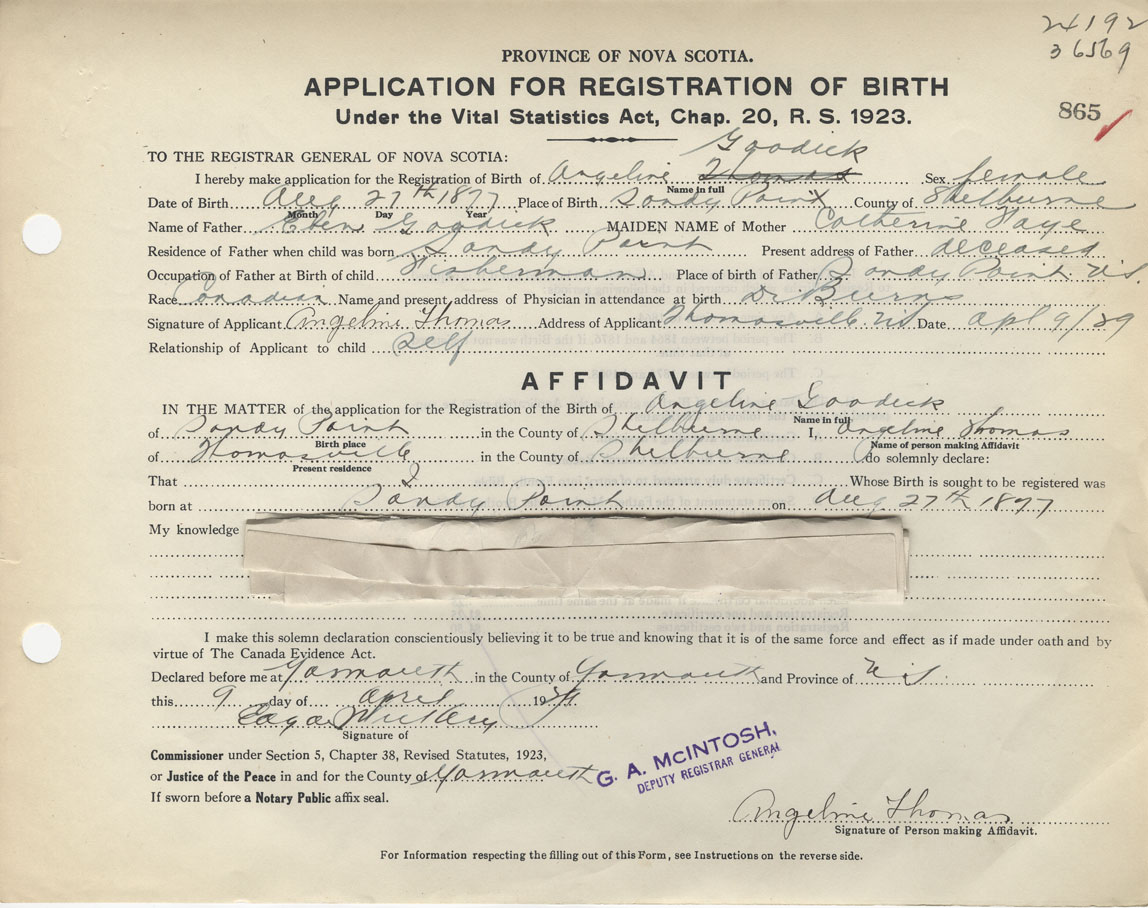 24192
36569
PROVINCE OF NOVA SCOTIA.
APPLICATION FOR REGISTRATION OF BIRTH
865
Under the Vital Statistics Act, Chap. 20, R. S. 1923.
Goodick
TO THE REGISTRAR GENERAL OF NOVA SCOTIA:
I hereby make application for the Registration of Birth of Angeline Thomas Sex female
Name in full
Date of Birth Aug 27th 1877 Place of Birth Sandy Point County of Shelburne
Month Day Year
Name of Father Eben Goodick MAIDEN NAME of Mother Catherine
Residence of Father when child was born Sandy Point Present address of Father deceased
Occupation of Father at Birth of child Fisherman Place of birth of Father Sandy Point N.S
Race Canadian Name and present address of Physician in attendance at birth Dr Burns
Signature of Applicant Angeline Thomas Address of Applicant Thomasville N.S Date Apl 9/29
Relationship of Applicant to child Self
AFFIDAVIT
IN THE MATTER of the application for the Registration of the Birth of Angeline Goodick
Name in full
of Sandy Point in the County of Shelburne I, Angeline Thomas
Birth place Name of person making Affidavit
of Thomasville in the County of Shelburne do solemnly declare:
Present residence
That I Whose Birth is sought to be registered was
born at Sandy Point on Aug 27th 1877
My knowledge
I make this solemn declaration conscientiously believing it to be true and knowing that it is of the same force and effect as if made under oath and by
virtue of The Canada Evidence Act.
Declared before me at Yarmouth in the County of Yarmouth and Province of N.S.
this 9 day of April 19
Edgar
Signature of
Commissioner under Section 5, Chapter 38, Revised Statutes, 1923,
or Justice of the Peace in and for the County of Yarmouth
G. A. McINTOSH,
DEPUTY REGISTRAR GENERAL
If sworn before a Notary Public affix seal.
Angeline Thomas
Signature of Person making Affidavit.
For Information respecting the filling out of this Form, see Instructions on the reverse side.